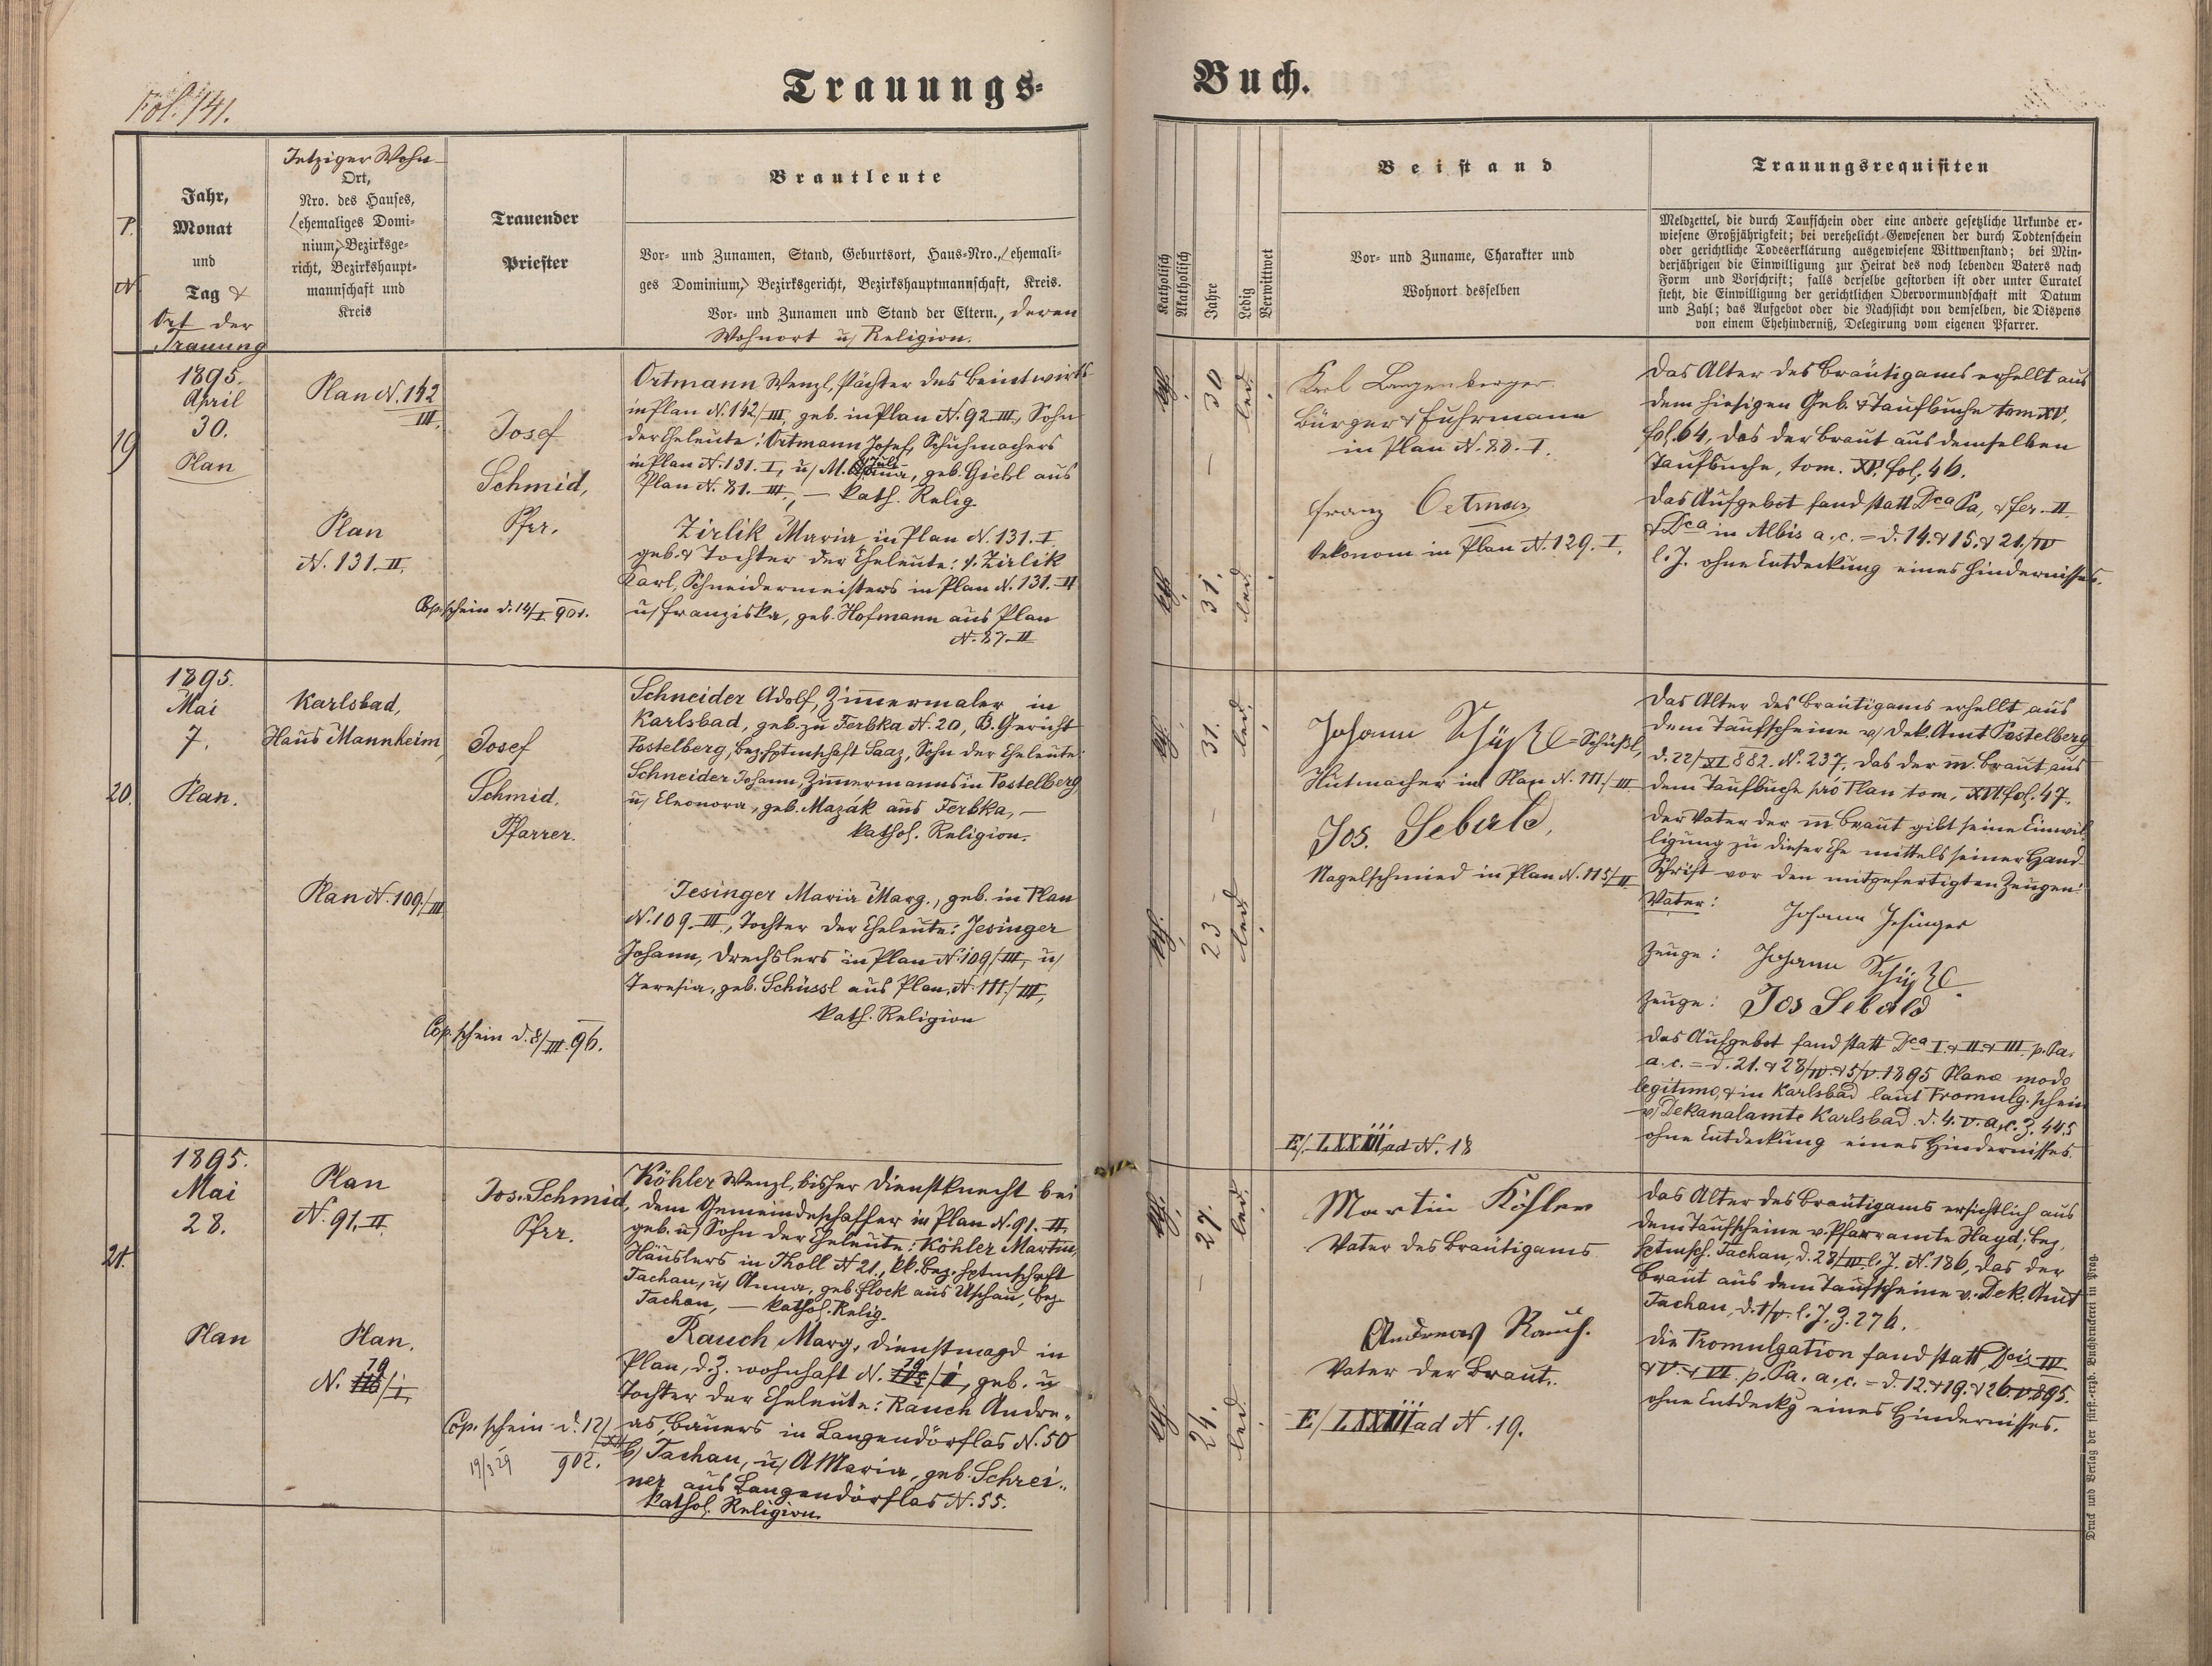 Fol. 141.
Trauungs-
Buch.
P.
N
Jahr,
Monat
und
Tag &
Ort der
Trauung
Jetziger Wohn-
Ort,
Nro. des Hauses,
(ehemaliges Domi-
nium,) Bezirksge-
richt, Bezirkshaupt-
mannschaft und
Kreis
Trauender
Priester
Brautleute
Vor- und Zunamen, Stand, Geburtsort, Haus-Nro., (ehemali-
ges Dominium,) Bezirksgericht, Bezirkshauptmannschaft, Kreis.
Vor- und Zunamen und Stand der Eltern., deren
Wohnort u/ Religion.
Katholisch
Akatholisch
Jahre
Ledig
Verwittwet
Beistand
Vor- und Zuname, Charakter und
Wohnort desselben
Trauungsrequisiten
Meldzettel, die durch Taufschein oder eine andere gesetzliche Urkunde er-
wiesene Großjährigkeit; bei verehelicht-Gewesenen der durch Todtenschein
oder gerichtliche Todeserklärung ausgewiesene Wittwenstand; bei Min-
derjährigen die Einwilligung zur Heirat des noch lebenden Vaters nach
Form und Vorschrift; falls derselbe gestorben ist oder unter Curatel
steht, die Einwilligung der gerichtlichen Obervormundschaft mit Datum
und Zahl; das Aufgebot oder die Nachsicht von demselben, die Dispens
von einem Ehehinderniß, Delegirung vom eigenen Pfarrer.
19
1895.
April
30.
Plan
Plan N. 142
III.
Plan
N. 131. II.
Josef
Schmid,
Pfrr.
Cop. schein d. 14/I 901.
Ortmann Wenzl, Pächter des Beintwirts
in Plan N. 142/III, geb. in Plan N. 92 III, Sohn
der Eheleute: Ortmann Josef, Schuhmachers
in Plan N. 131. I, u/ M. , geb. Giehl aus
Plan N. 81. III, — kath. Relig.
Zirlik Maria in Plan N. 131. I,
geb. & Tochter der Eheleute: Zirlik
Karl, Schneidermeisters in Plan N. 131. II
u/ Franziska, geb. Hofmann aus Plan
N. 87. II
kth.
30
led.
kth.
31.
led.
Karl Langenberger
Bürger & Fuhrmann
in Plan N. 88. I.
Franz Ortman
Oekonom in Plan N. 129. I.
Das Alter des Bräutigams erhellt aus
dem hiesigen Geb. & Taufbuche tom. XV,
fol. 64, das der Braut aus demselben
Taufbuche, tom. XV. fol. 46.
Das Aufgebot fand statt Dca Pa, & fer. II
& Dca in Albis a. c. = d. 14. & 15. & 21./IV
l. J. ohne Entdeckung eines Hindernisses.
20.
1895.
Mai
7.
Plan.
Karlsbad,
Haus Mannheim,
Plan N. 109./III
Josef
Schmid,
Pfarrer.
Cop. schein d. 8/III. 96.
Schneider Adolf, Zimmermaler in
Karlsbad, geb. zu Ferbka N. 20, B. Gericht
Postelberg, Bez. hptmschaft Saaz, Sohn der Eheleute:
Schneider Johann, Zimmermanns in Postelberg
u/ Eleonora, geb. Mazák aus Ferbka, —
kathol. Religion.
Jesinger Maria Marg., geb. in Plan
N. 109. III., Tochter der Eheleute: Jesinger
Johann, Drechslers in Plan N. 109/III, u/
Teresia, geb. Schüssl aus Plan, N. 111./III,
kath. Religion
kth.
31.
led.
kth.
23
led
Johann Schüßl = Schüßl,
Hutmacher in Plan N. 111./III
Jos. Sebald,
Nagelschmied in Plan N. 115/II
E/. LXXIII ad N. 18
Das Alter des Bräutigams erhellt aus
dem Taufscheine v/ Dek. Amt Postelberg
d. 22/XI 882. N. 237. das der m. Braut aus
dem Taufbuche pro Plan tom. XVI fol. 47.
Der Vater der m Braut gibt seine Einwil
ligung zu dieser Ehe mittels seiner Hand-
Schrift vor den mitgefertigten Zeugen:
Vater:
Johann Jesinger
Zeuge: Johann Schüßl.
Zeuge: Jos Sebald
Das Aufgebot fand statt Dca I. & II. & III. p. Pa.
a. c. = d. 21. & 28/IV. & 5/V. 1895 Planæ modo
legitimo, & in Karlsbad laut Promulg. schein
v/ Dekanalamte Karlsbad d. 4. V. a. c. Z. 445
ohne Entdeckung eines Hindernisses.
21.
1895.
Mai
28.
Plan
Plan
N. 91. II.
Plan.
N. 79/I.
Jos. Schmid,
Pfrr.
Cop. schein d. 12/XII
902.
19/3 29
Köhler Wenzl, bisher Dienstknecht bei
dem Gemeindeschaffer in Plan N. 91. II,
geb. u/ Sohn der Eheleute: Köhler Martin,
Häuslers in Tholl N 21., kk. Bez. hptmschaft
Tachau, u/ Anna, geb. Flock aus Uschau, Bez.
Tachau, — kathol. Relig.
Rauch Marg, Dienstmagd in
Plan, d. Z. wohnhaft N. 79/I, geb. u
Tochter der Eheleute: Rauch Andre-
as, Bauers in Langendörflas N. 50
b/ Tachau, u/ A Maria, geb. Schrei-
ner aus Langendörflas N. 55.
kathol. Religion.
kth.
27.
led.
kth.
24.
led.
Martin Köhler
Vater des Bräutigams
Andreas Rauch.
Vater der Braut.
E/ LXXIII ad N. 19.
Das Alter des Bräutigams ersichtlich aus
dem Taufscheine v. Pfarramte Hayd, Bez.
hptmsch. Tachau, d. 28/III. l. J. N. 186, das der
Braut aus dem Taufscheine v. Dek. Amt
Tachau, d. 1/V. l. J. Z. 276.
Die Promulgation fand statt Dcis IV
& V. & VI. p. Pa. a. c. = d. 12. & 19. & 26. V. 895.
ohne Entdeckg eines Hindernisses.
Druck und Verlag der fürst.-erzb. Buchdruckerei in Prag.